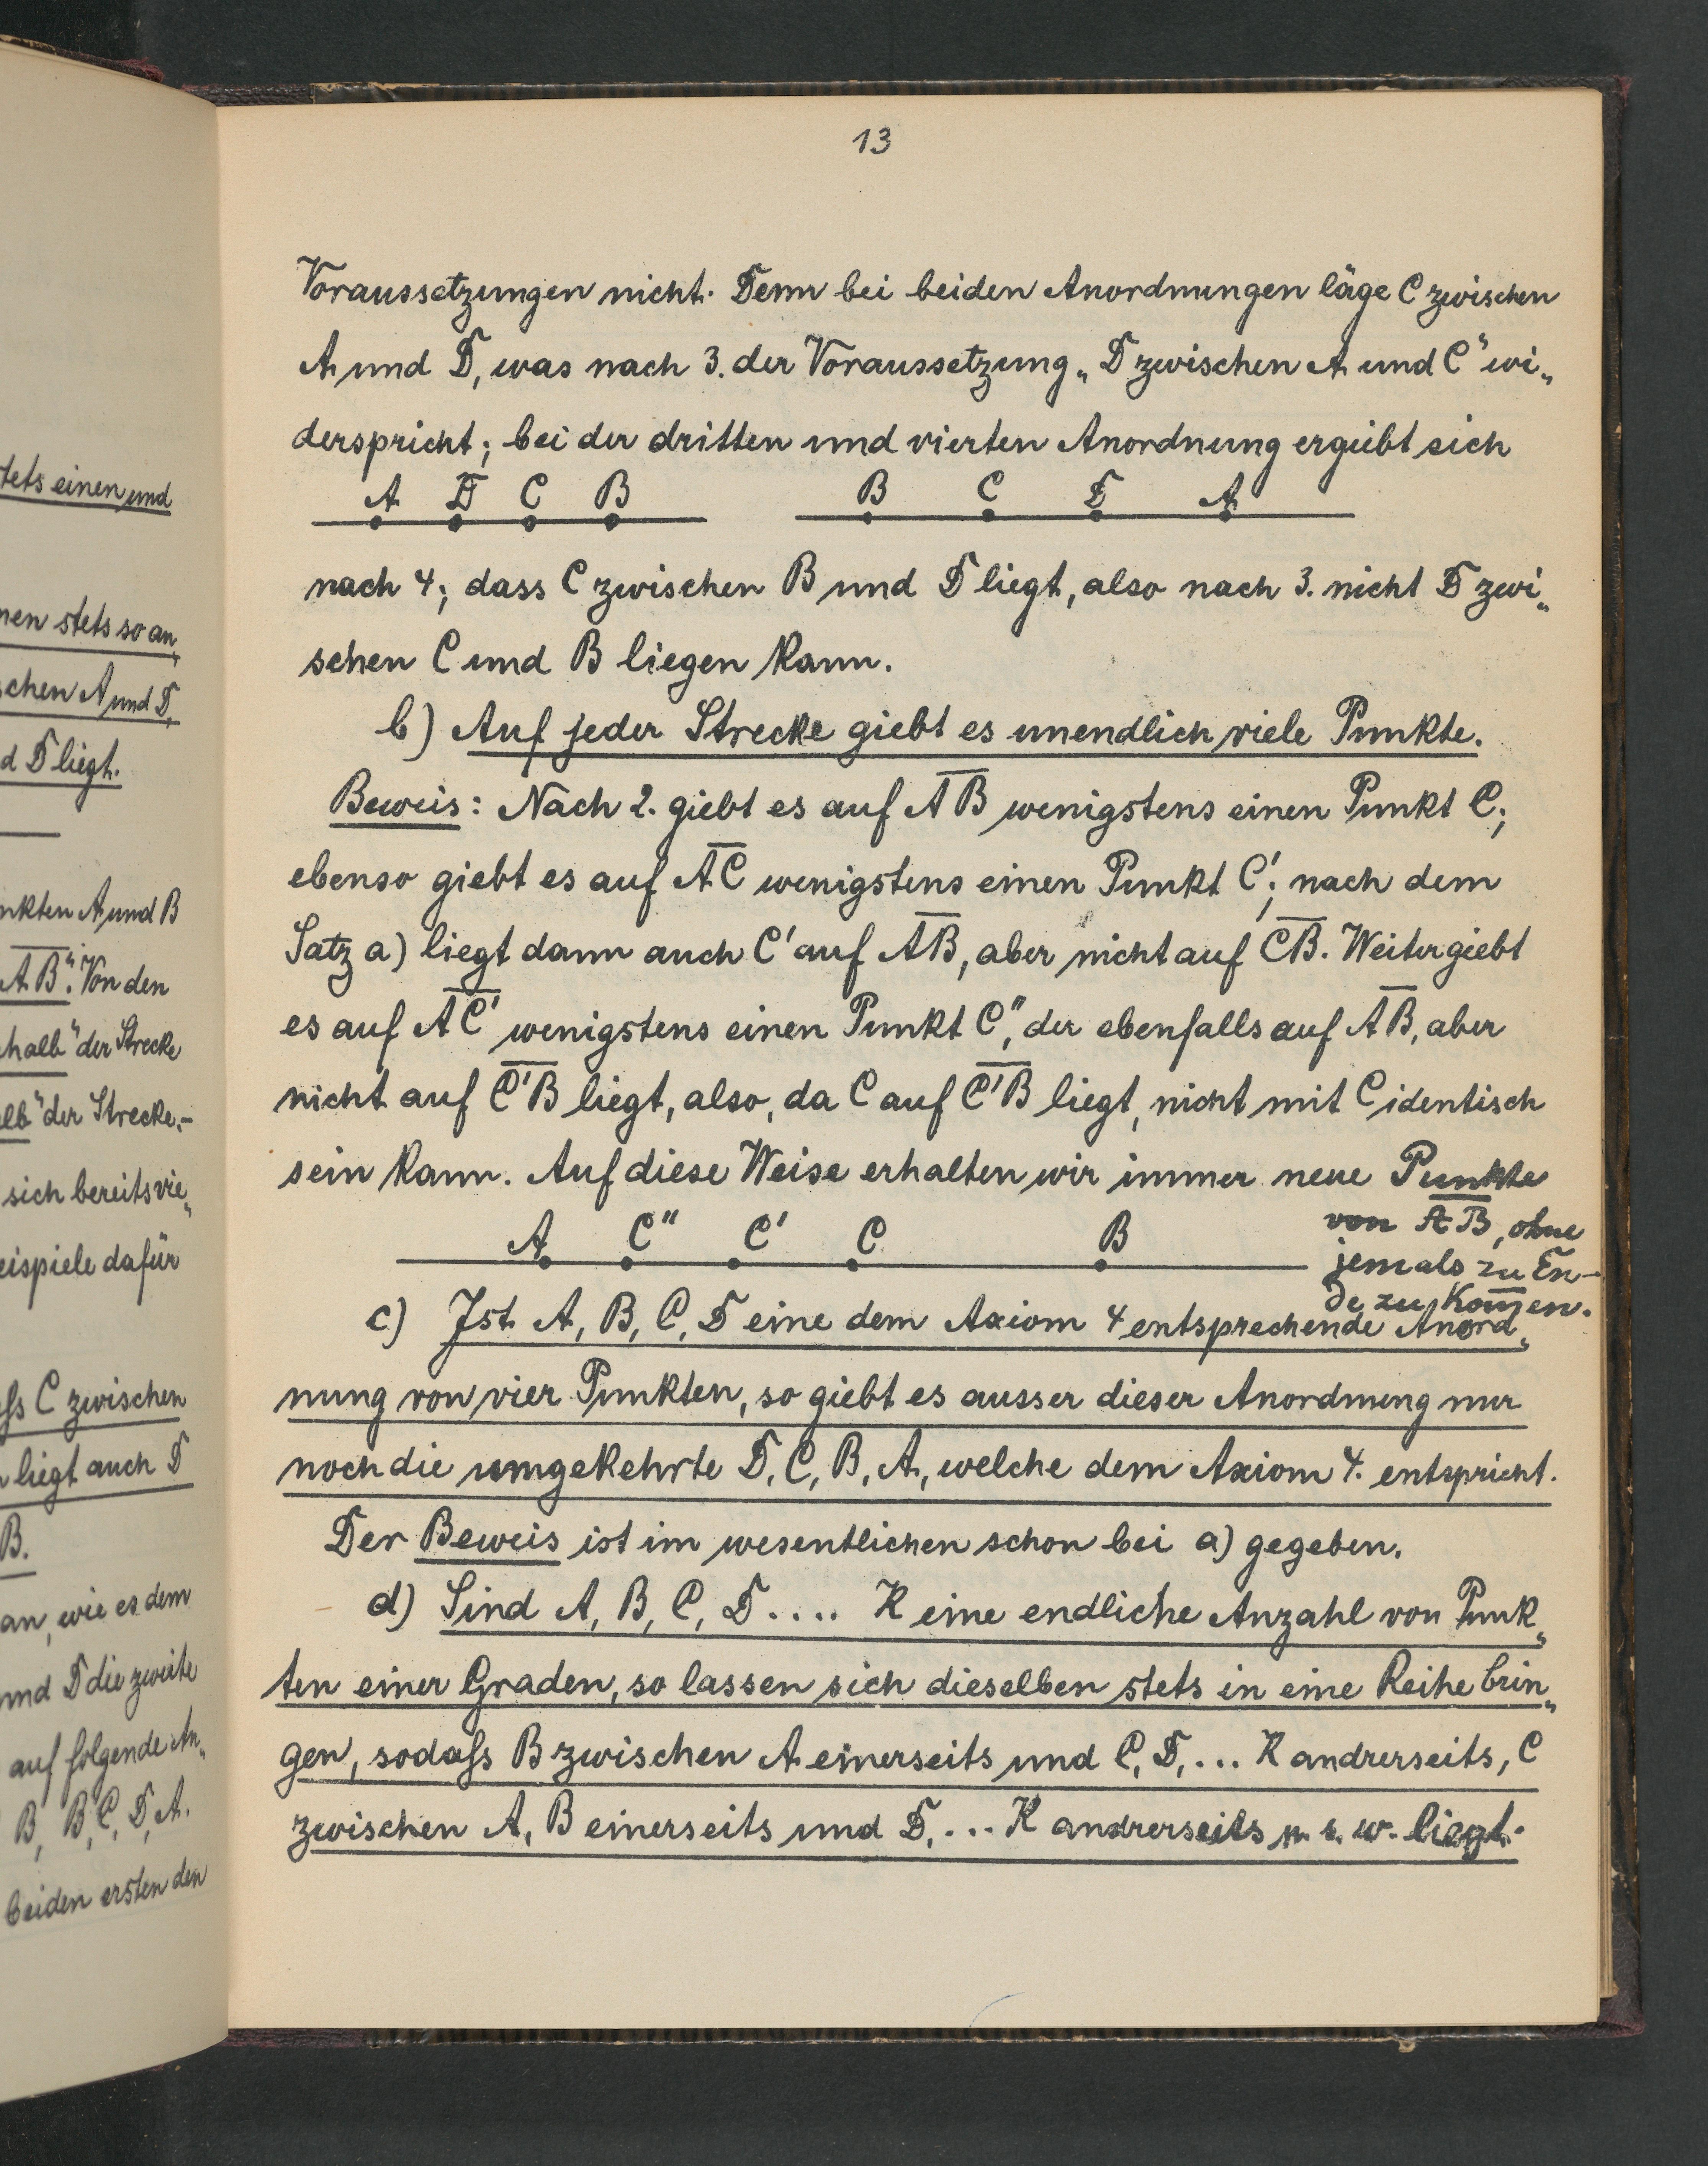 13
Voraussetzungen nicht. Denn bei beiden Anordnungen läge C zwischen
A und D, was nach 3. der Voraussetzung „D zwischen A und C" wi„
derspricht; bei der dritten und vierten Anordnung ergiebt sich
A D C B B C D A
nach 4; dass C zwischen B und D liegt, also nach 3. nicht D zwi„
schen C und B liegen kann.
b) Auf jeder Strecke giebt es unendlich viele Punkte.
Beweis: Nach 2. giebt es auf A̅B̅ wenigstens einen Punkt C;
ebenso giebt es auf A̅C̅ wenigstens einen Punkt C'; nach dem
Satz a) liegt dann auch C' auf A̅B̅, aber nicht auf C̅B̅. Weiter giebt
es auf A̅C̅' wenigstens einen Punkt C", der ebenfalls auf A̅B̅, aber
nicht auf C̅'B̅ liegt, also, da C auf C̅'B̅ liegt, nicht mit C identisch
sein kann. Auf diese Weise erhalten wir immer neue Punkte
von A̅B̅, ohne
jemals zu En-
de zu kom̅en.
A C" C' C B
c) Ist A, B, C, D eine dem Axiom 4 entsprechende Anord„
nung von vier Punkten, so giebt es ausser dieser Anordnung nur
noch die umgekehrte D, C, B, A, welche dem Axiom 4. entspricht.
Der Beweis ist im wesentlichen schon bei a) gegeben.
d) Sind A, B, C, D .... K eine endliche Anzahl von Punk„
ten einer Graden, so lassen sich dieselben stets in eine Reihe brin„
gen, sodaſs B zwischen A einerseits und C, D, ... K andrerseits, C
zwischen A, B einerseits und D, ... K andrerseits u. s. w. liegt.
tets einen und
nen stets so an„
schen A und D,
d D liegt.
nkten A und B
A̅B̅". Von den
halb" der Strecke
alb" der Strecke.-
sich bereits vie„
eispiele dafür
ſs C zwischen
liegt auch D
B.
an, wie es dem
und D die zweite
auf folgende An„
B, B, C, D, A.
beiden ersten den